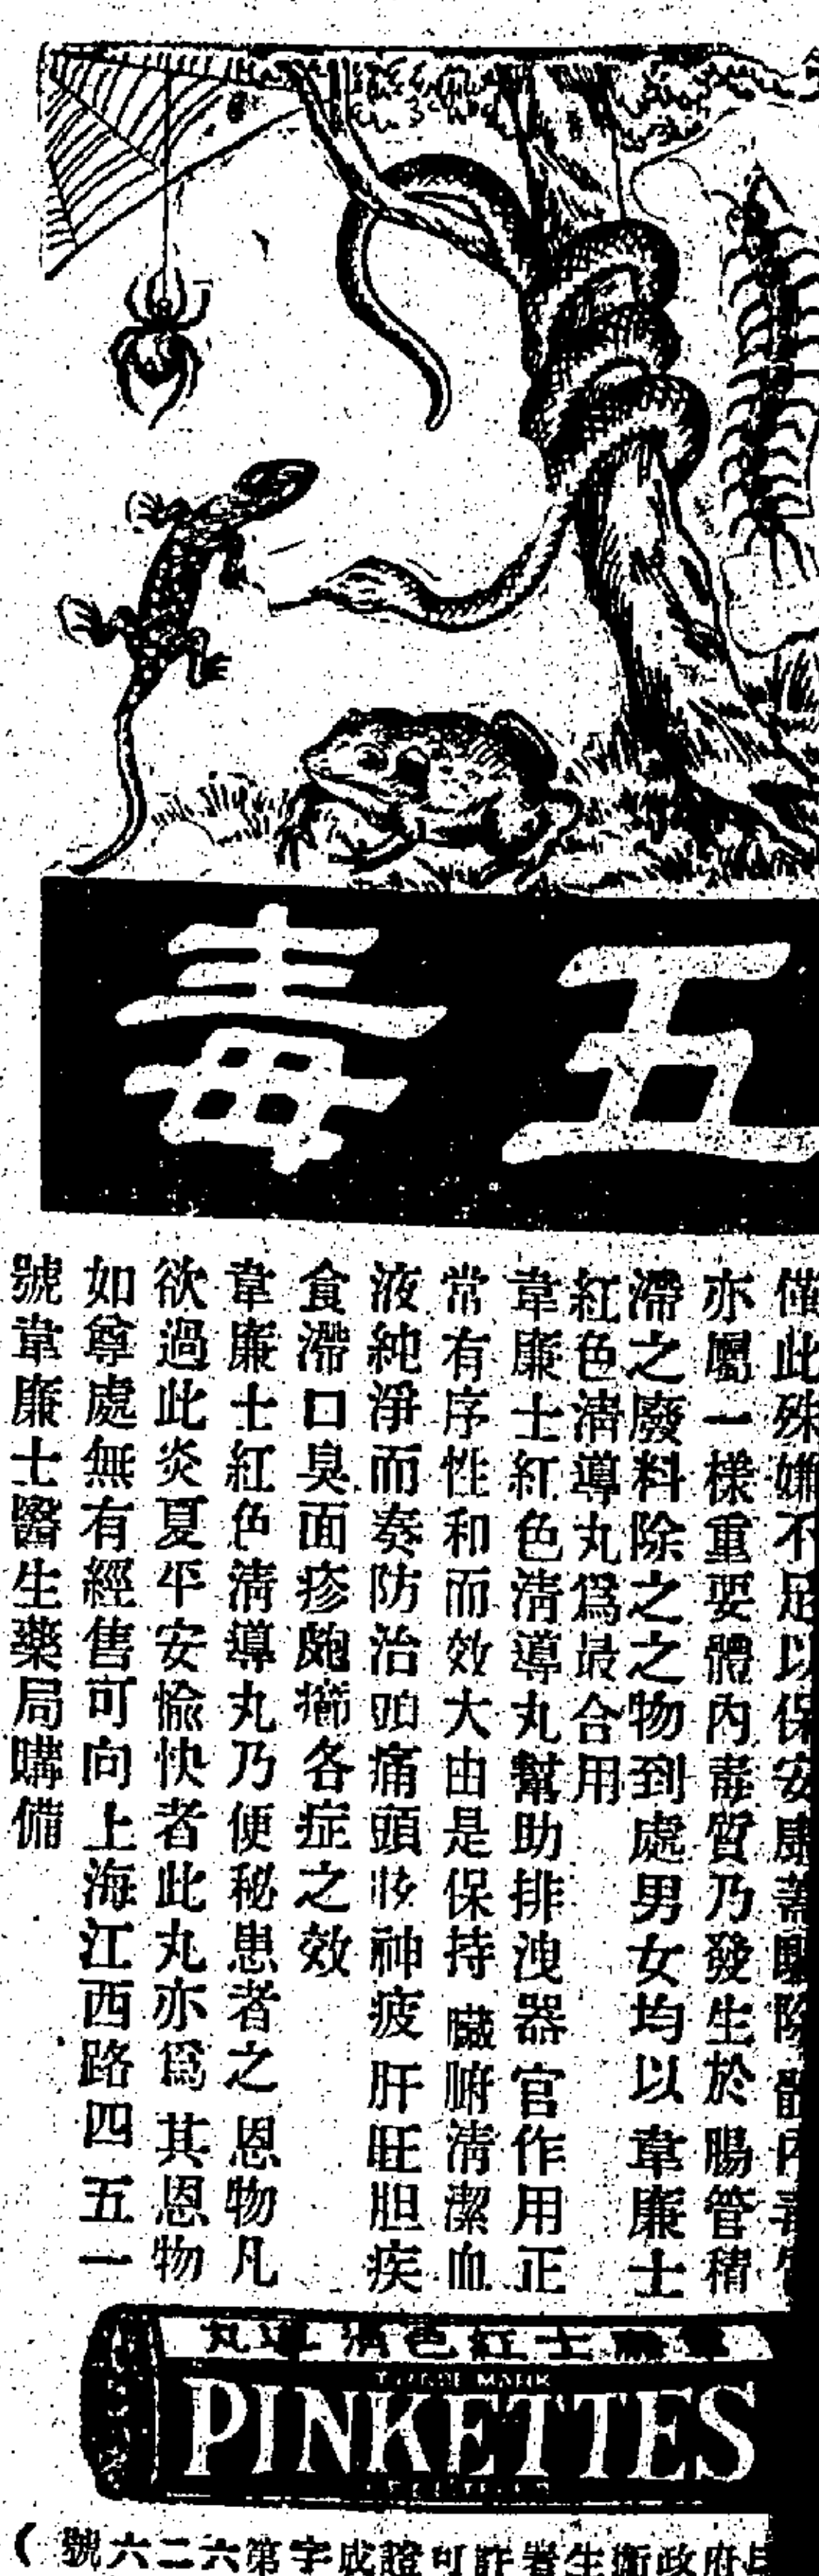 五毒
僅此殊嫌不足以保安康蓋驅除體內毒質
亦屬一樣重要體內毒質乃發生於腸管積
滯之廢料除之之物到處男女均以韋廉士
紅色清導丸爲最合用
韋廉士紅色清導丸幫助排洩器官作用正
常有序性和而效大由是保持臟腑清潔血
液純淨而奏防治頭痛頭眩神疲肝旺胆疾
食滯口臭面疹皰癤各症之效
韋廉士紅色清導丸乃便秘患者之恩物凡
欲過此炎夏平安愉快者此丸亦爲其恩物
如尊處無有經售可向上海江西路四五一
號韋廉士醫生藥局購備
韋廉士紅色清導丸
TRADE MARK
PINKETTES
府政衛生署許可證成字第六二六號(